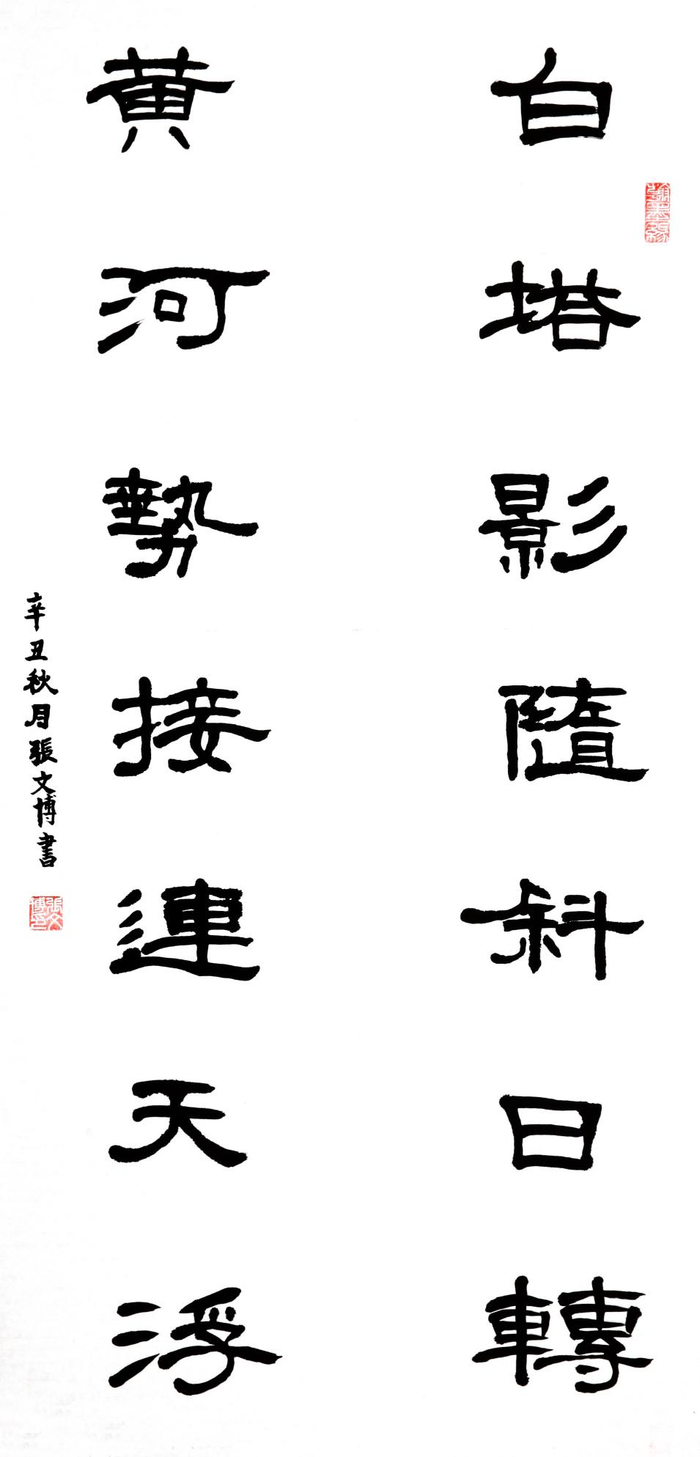 白塔影隨斜日轉
黄河勢接連天浮
辛丑秋月張文博書